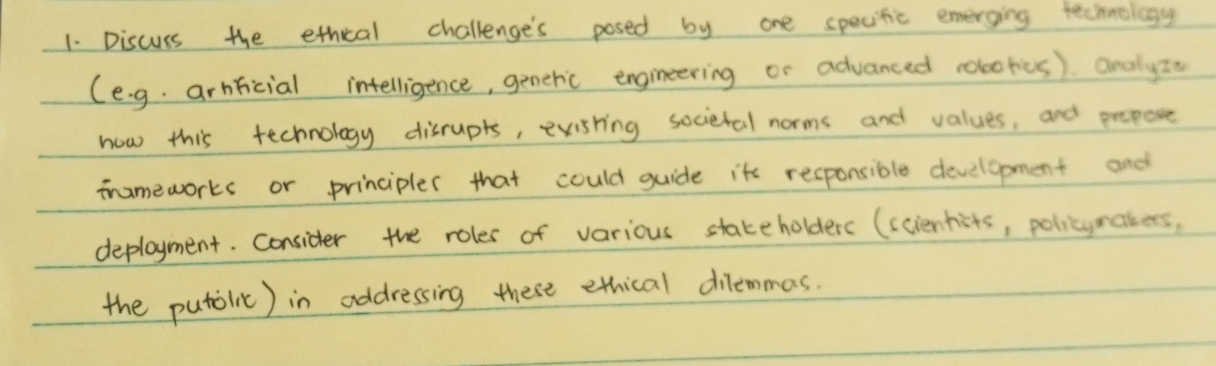 1. Discuss the ethical challenge's posed by one specific emerging technology
(e.g. artificial intelligence, genetic engineering or advanced robotics). analyze
how this technology disrupts, existing societal norms and values, and propose
frameworks or principles that could guide its responsible development and
deployment. Consider the roles of various stakeholders (scientists, policymakers,
the public) in addressing these ethical dilemmas.